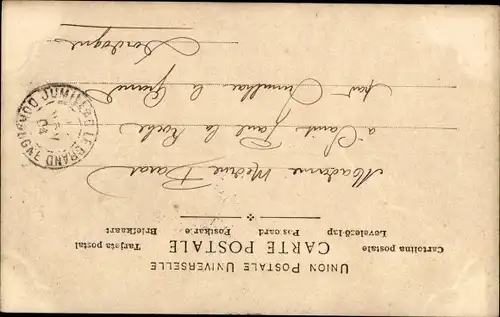 UNION POSTALE UNIVERSELLE
CARTE POSTALE
Cartolina postale Tarjeta postal
Levelező-lap Post card Postkarte Briefkaart
Madame
à Saint Paul la Roche
par Jumilhac le Grand
Dordogne
JUMILHAC LE GRAND
DORDOGNE
04